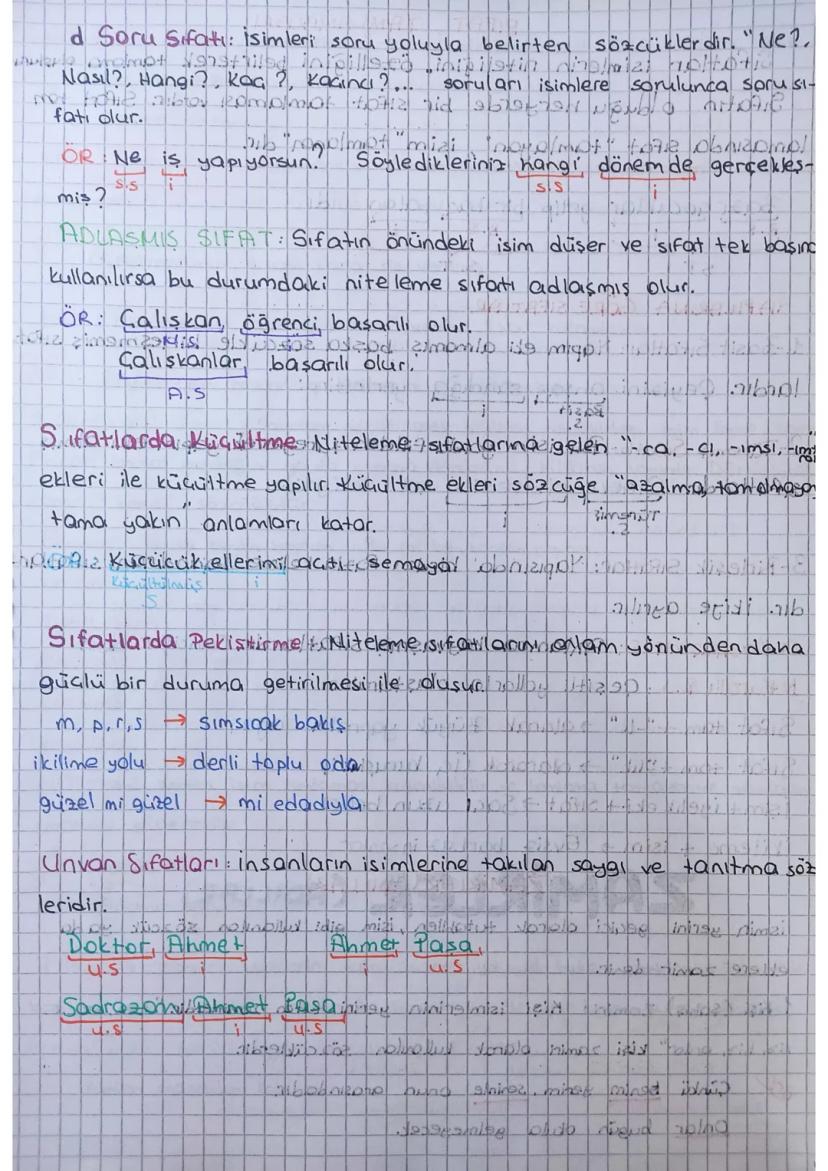 d Soru Sıfatı: isimleri soru yoluyla belirten sözcüklerdir. "Ne?,
Nasıl?, Hangi?, kaç?, kaçıncı?... soruları isimlere sorulunca soru sı-
fatı olur.
ÖR: Ne iş yapıyorsun? Söyledikleriniz hangi dönemde gerçekleş-
s.s i s.s i
miş?
ADLAŞMIŞ SIFAT: Sıfatın önündeki isim düşer ve sıfat tek başına
kullanılırsa bu durumdaki niteleme sıfatı adlaşmış olur.
ÖR: Çalışkan öğrenci başarılı olur.
Çalışkanlar başarılı olur.
A.S
Sıfatlarda Küçültme: Niteleme sıfatlarına gelen "-ca, -cı, -ımsı,
ekleri ile küçültme yapılır. Küçültme ekleri sözcüğe "azalma, tam olmayan
tama yakın" anlamları katar.
Küçücük ellerimi
Küçültülmüş i
S
Sıfatlarda Pekiştirme: Niteleme sıfatlarının anlam yönünden daha
güçlü bir duruma getirilmesi ile oluşur.
m, p, r, s → sımsıcak bakış
ikilime yolu → derli toplu oda
güzel mi güzel → mi edadıyla
Unvan Sıfatları: insanların isimlerine takılan saygı ve tanıtma söz
leridir.
Doktor Ahmet Ahmet Paşa
u.s i i u.s
Sadrazam Ahmet Paşa
u.s i u.s